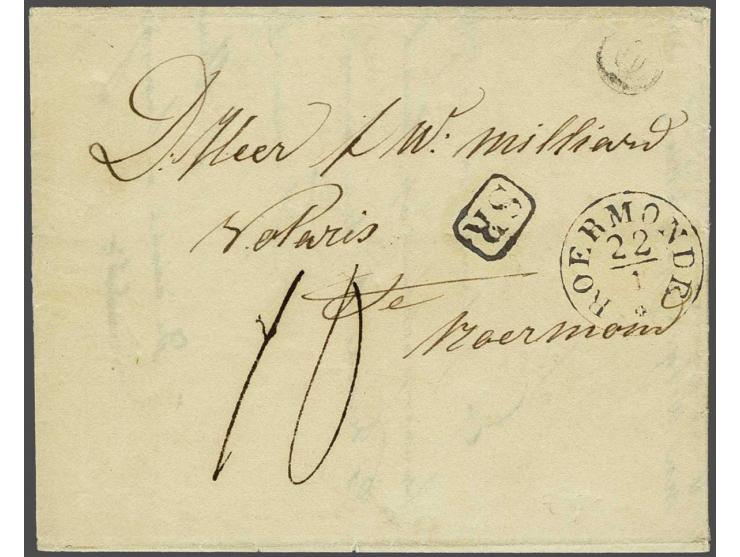 D: Heer f W: Milliard
Notaris
SR
ROERMONDE
22
1
Te
Roermond
10